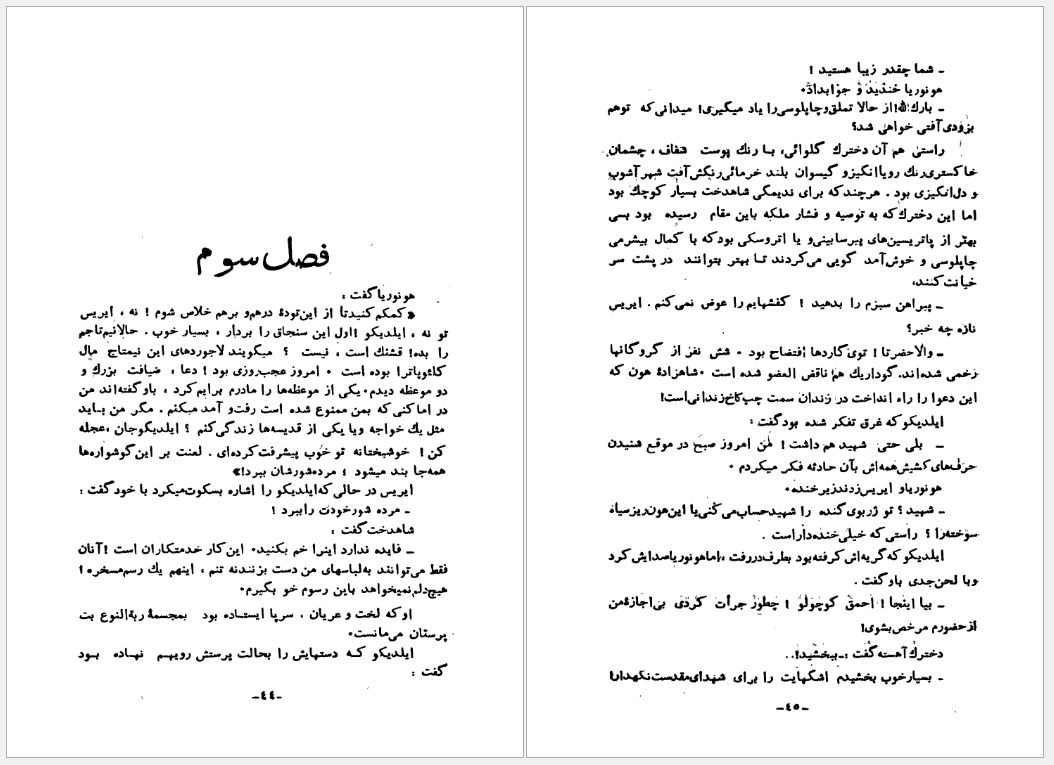 فصل سوم
هونوریا گفت :
«کمکم کنید تا از این تودهٔ درهم و برهم خلاص شوم ! نه ، ایریس
تو نه ، ایلدیکو ! اول این سنجاق را بردار ، بسیار خوب . حالا نیم تاجم
را بده ! قشنك است ، نیست ؟ میگویند لاجوردهای این نیمتاج مال
کلئوپاترا بوده است ۰ امروز عجب روزی بود ! دعا ، ضیافت بزرگ و
دو موعظه دیدم۰یکی از موعظه‌ها را مادرم برایم کرد ، باو گفته‌اند من
در اماکنی که بمن ممنوع شده است رفت و آمد میکنم . مگر من بـاید
مثل یك خواجه ویا یکی از قدیسه‌ها زندگی کنم ؟ ایلدیکوجان ،عجله
کن ! خوشبختانه تو خوب پیشرفت کرده‌ای . لعنت بر این گوشواره‌ها
همه‌جا بند میشود ؛ مرده‌شورشان ببرد !»
ایریس در حالی که ایلدیکو را اشاره بسکوت میکرد با خود گفت :
ـ مرده شور خودت را ببرد !
شاهدخت گفت :
ـ فایده ندارد اینرا خم بکنید۰ این کار خدمتکاران است ! آنان
فقط می‌توانند به لباسهای من دست بزنند نه تنم ، اینهم یك رسم مسخره !
هیچ دلم نمیخواهد باین رسوم خو بگیرم۰
او که لخت و عریان ، سرپا ایستـاده بود بمجسمهٔ ربة‌النوع بت
پرستان می‌مانست۰
ایلدیکو کـه دستهایش را بحالت پرستش رویهـم نهاده بـود
گفت :
ـ٤٤ـ
ـ شما چقدر زیبا هستید !
هونوریا خندید و جواب داد۰
ـ بارك‌الله! از حالا تملق و چاپلوسی را یاد میگیری! میدانی که توهم
بزودی آفتی خواهی شد؟
راستی هم آن دخترك گلوائی، بـا رنك پوست شفاف ، چشمان
خاکستری رنك رویا انگیز و گیسوان بلند خرمائی رنگش آفت شهر آشوب
و دل انگیزی بود . هر چند که برای ندیمگی شاهدخت بسیار کوچك بود
اما این دخترك که به توصیه و فشار ملکه باین مقام رسیده بود بسی
بهتر از پاتریسین‌های پیر سابینی و یا اتروسکی بود که با کمال بیشرمی
چاپلوسی و خوش‌آمد گویی می‌کردند تـا بهتر بتوانند در پشت سر
خیانت کنند۰
ـ پیراهن سبزم را بدهید ! کفشهایم را عوض نمی‌کنم . ایریس
تازه چه خبر؟
ـ والاحضرتا ! توی گاردها افتضاح بود ۰ شش نفر از گروگانها
زخمی شده‌اند. گوداریك هم ناقص العضو شده است ۰شاهزادهٔ هون که
این دعوا را راه انداخت در زندان سمت چپ کاخ زندانی است!
ایلدیکو که غرق تفکر شده بود گفت :
ـ بلی حتی شهید هم داشت ! من امروز صبح در موقع شنیدن
حرف‌های کشیش همه‌اش بآن حادثه فکر میکردم ۰
هونوریا و ایریس زدند زیر خنده۰
ـ شهید ؟ تو ژربوی گنده را شهید حساب می‌کنی یا این هون ریز سیاه
سوخته‌را ؟ راستی که خیلی خنده‌دار است .
ایلدیکو که گریه‌اش گرفته بود بطرف در رفت ،اما هونوریا صدایش کرد
و با لحن جدی باو گفت .
ـ بیا اینجا ! احمق کوچولو ! چطور جرأت کردی بی‌اجازهٔ من
از حضورم مرخص بشوی!
دخترك آهسته گفت :ـ ببخشید!..
ـ بسیار خوب بخشیدم اشکهایت را برای شهدای مقدست نگهدار!
ـ٤٥ـ